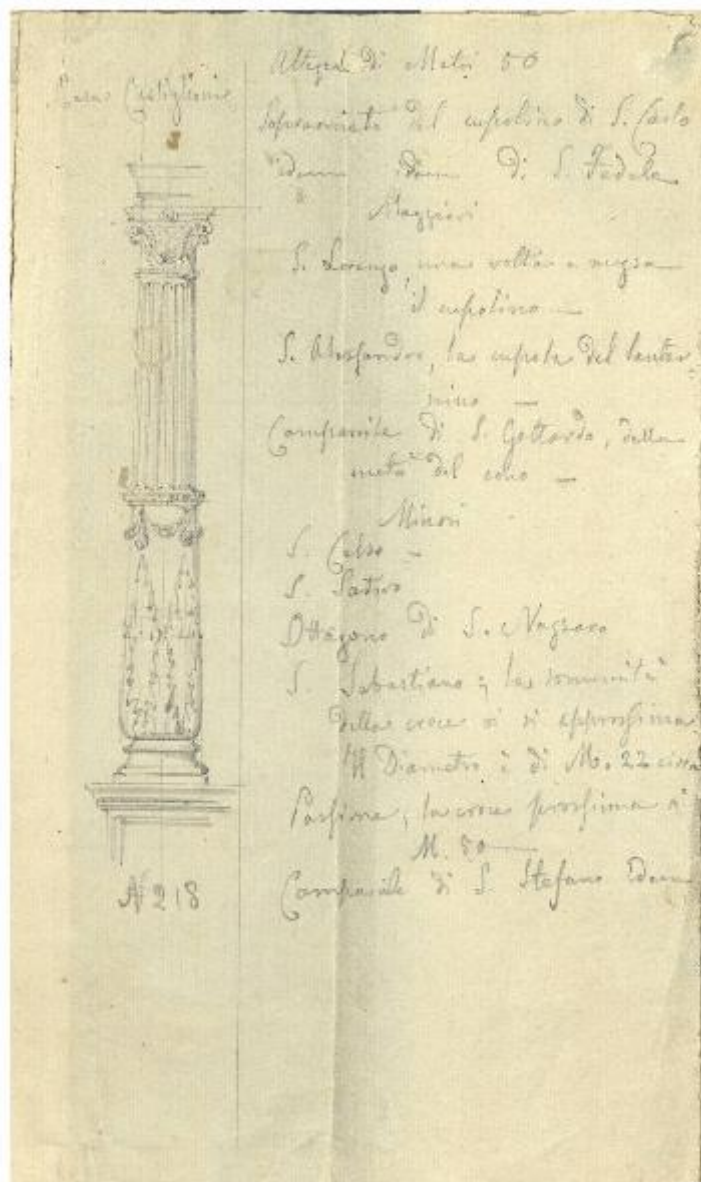 Casa Castiglioni
Altezza di Metri 50
Sopraornato del cupolino di S. Carlo
idem idem di S. Fedele
Maggiori
S. Lorenzo, una volta e mezza
il cupolino —
S. Alessandro, la cupola del lanter
nino —
Campanile di S. Gottardo, della
metà del cono —
Minori
S. Celso —
S. Satiro
Ottagono di S. Nazzaro
S. Sebastiano; la sommità
della croce vi si approssima
Il Diametro è di M. 22 circa
Passione, la croce prossima a
M. 50 —
Campanile di S. Stefano Idem
N 218